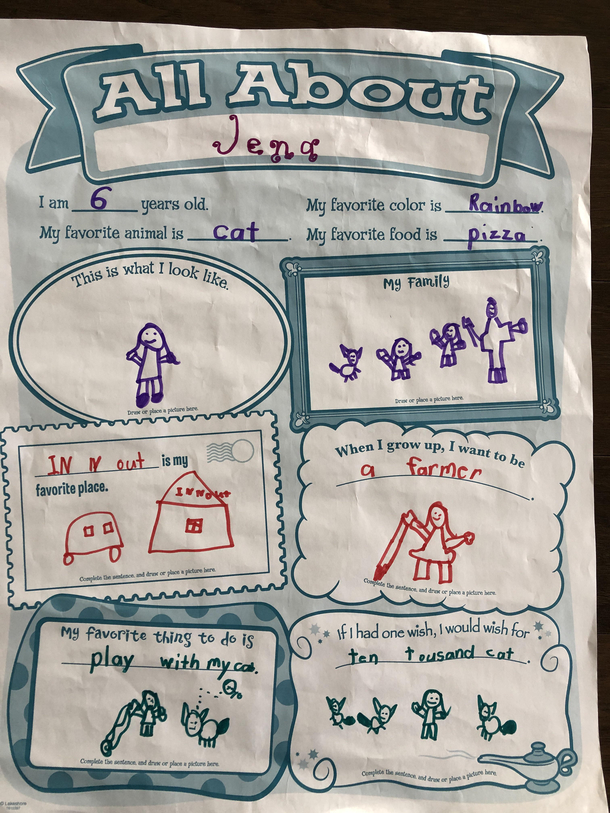 All About
Jena
I am 6 years old. My favorite color is Rainbow.
My favorite animal is cat. My favorite food is pizza.
This is what I look like.
Draw or place a picture here.
My Family
Draw or place a picture here.
IN N out is my
favorite place.
IN N out
Complete the sentence, and draw or place a picture here.
When I grow up, I want to be
a farmer.
Complete the sentence, and draw or place a picture here.
My favorite thing to do is
play with my cat.
Complete the sentence, and draw or place a picture here.
If I had one wish, I would wish for
ten tousand cat.
Complete the sentence, and draw or place a picture here.
© Lakeshore